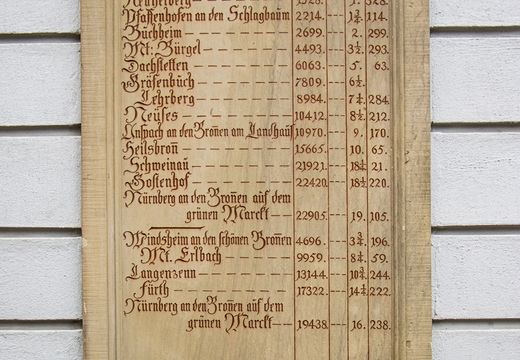 Pfaffenhofen an den Schlagbaum 2214. --- 1¾. 114.
Buchheim 2699. --- 2. 299.
Mt: Bürgel 4493. --- 3½. 293.
Dachstetten 6063. --- 5. 63.
Gräfenbüch 7809. --- 6½.
Lehrberg 8984. --- 7¼. 284.
Neüses 10412. --- 8½. 212.
Anspach an den Bronen am Landhauß 10970. --- 9. 170.
Heilsbron 15665. --- 10. 65.
Schweinau 21921. --- 18¼. 21.
Gostenhof 22420. --- 18½. 220.
Nürnberg an den Bronen auf dem
grünen Marckt 22905. --- 19. 105.
Windsheim an den schönen Bronen 4696. --- 3¾. 196.
Mt. Erlbach 9959. --- 8¼. 59.
Langenzenn 13144. --- 10¾. 244.
Fürth 17322. --- 14¼. 222.
Nürnberg an den Bronen auf dem
grünen Marckt 19438. --- 16. 238.